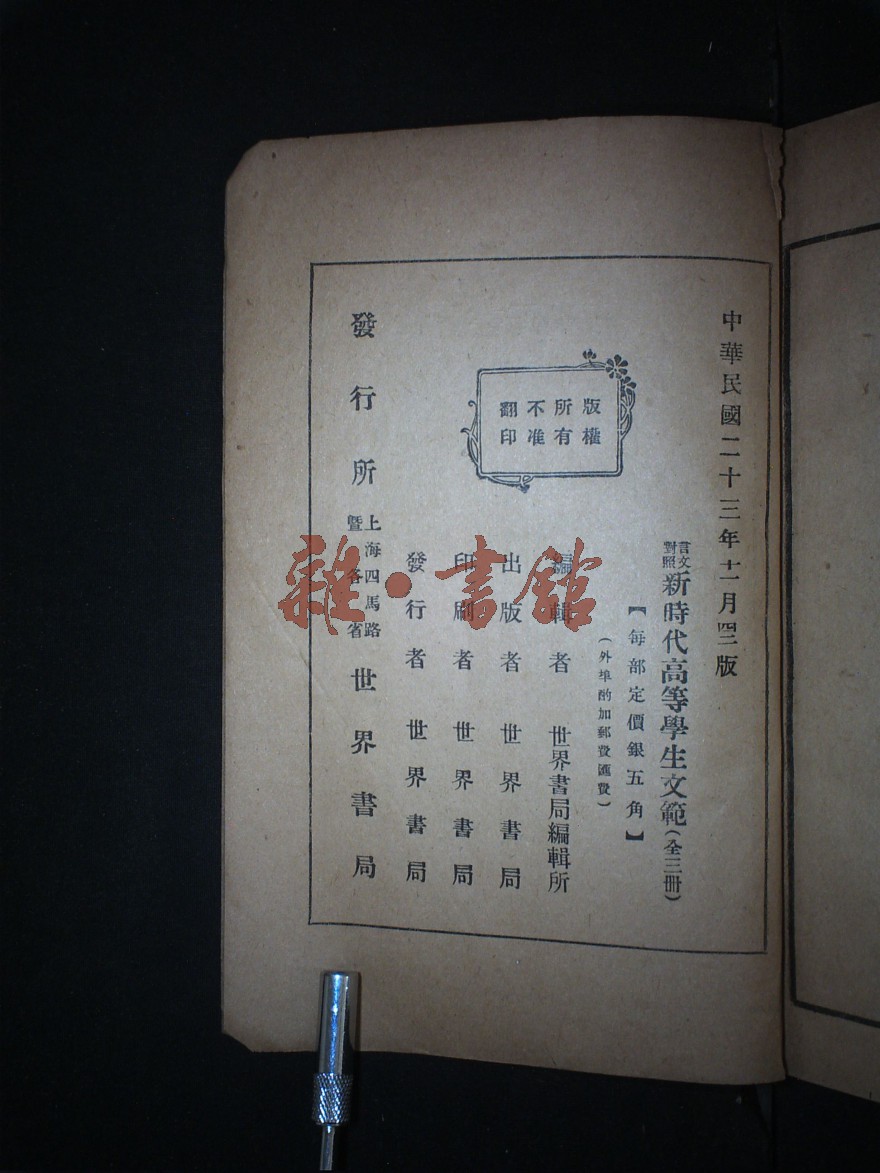 中華民國二十三年十一月四版
言文
對照
新時代高等學生文範(全三冊)
【每部定價銀五角】
(外埠酌加郵費匯費)
版權
所有
不准
翻印
編輯者 世界書局編輯所
出版者 世界書局
印刷者 世界書局
發行者 世界書局
發行所
上海四馬路
暨各省
世界書局
雜·書館